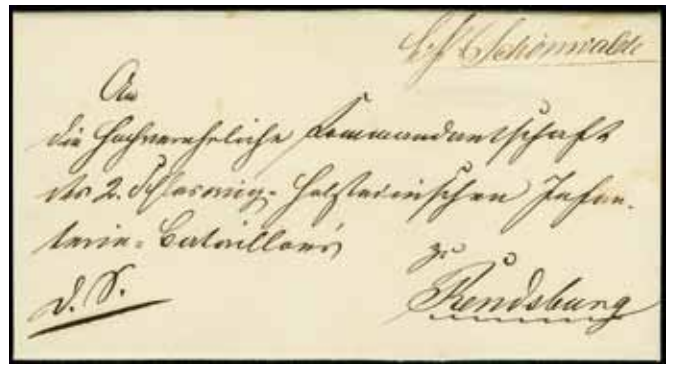 Schönwalde
An
die Hochverehrliche Kommandantschaft
des 2. Schleswig-Holsteinischen Infan-
terie-Bataillons
zu
D. S.
Rendsburg